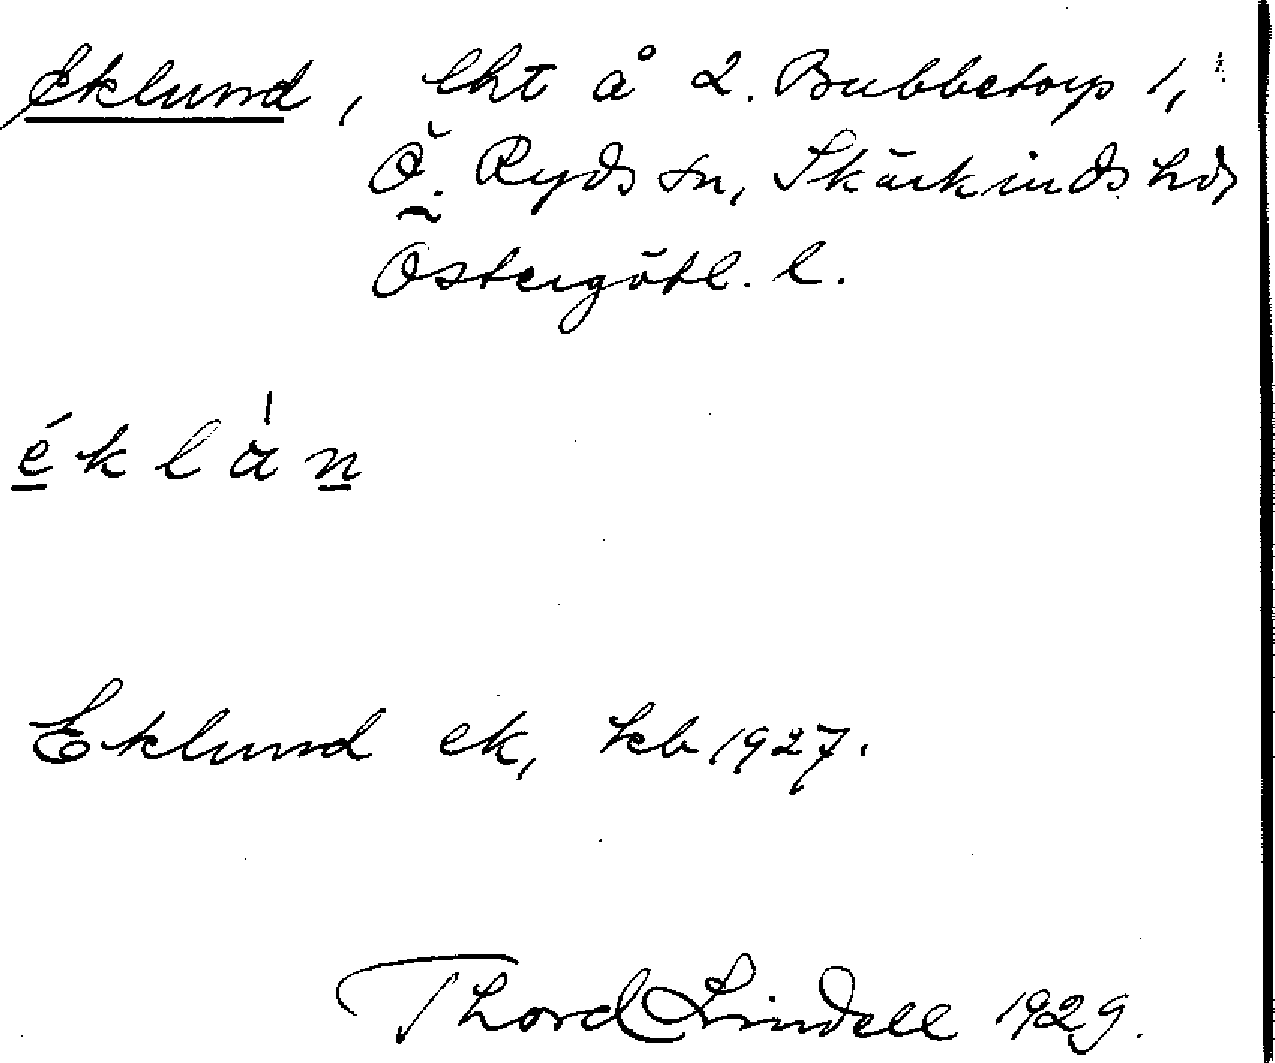 Eklund, lht å 2. Bubbetorp 1,
Ö. Ryds sn, Skärkinds hd,
Östergötl. l.
éklàn
Eklund ek, kb 1927.
Thord Lindell 1929.